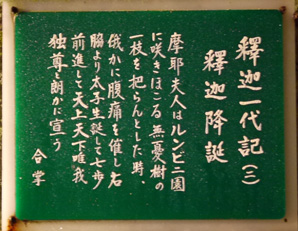 釋迦一代記(二)
釋迦降誕
摩耶夫人はルンビニ園
に咲きほこる無憂樹の
一枝を把らんとした時、
俄かに腹痛を催し右
脇より太子生誕し七歩
前進して天上天下唯我
独尊と朗かに宣う
合掌